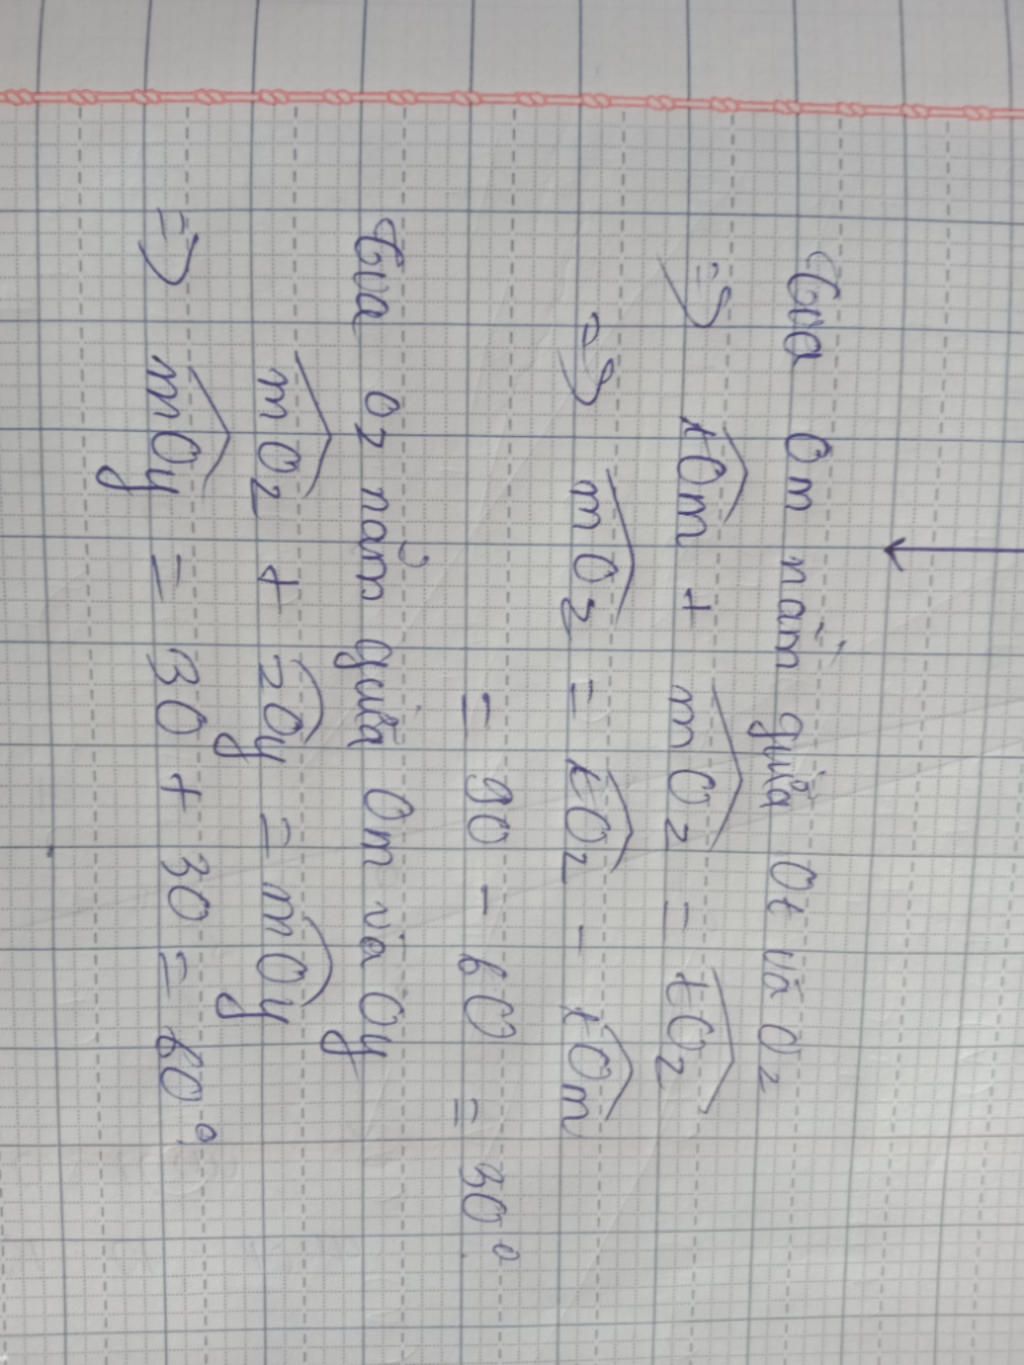 Tia Om nằm giữa Ot và Oz
=> tOm + mOz = tOz
=> mOz = tOz - tOm
= 90 - 60 = 30°
Tia Oz nằm giữa Om và Oy
mOz + zOy = mOy
=> mOy = 30 + 30 = 60°